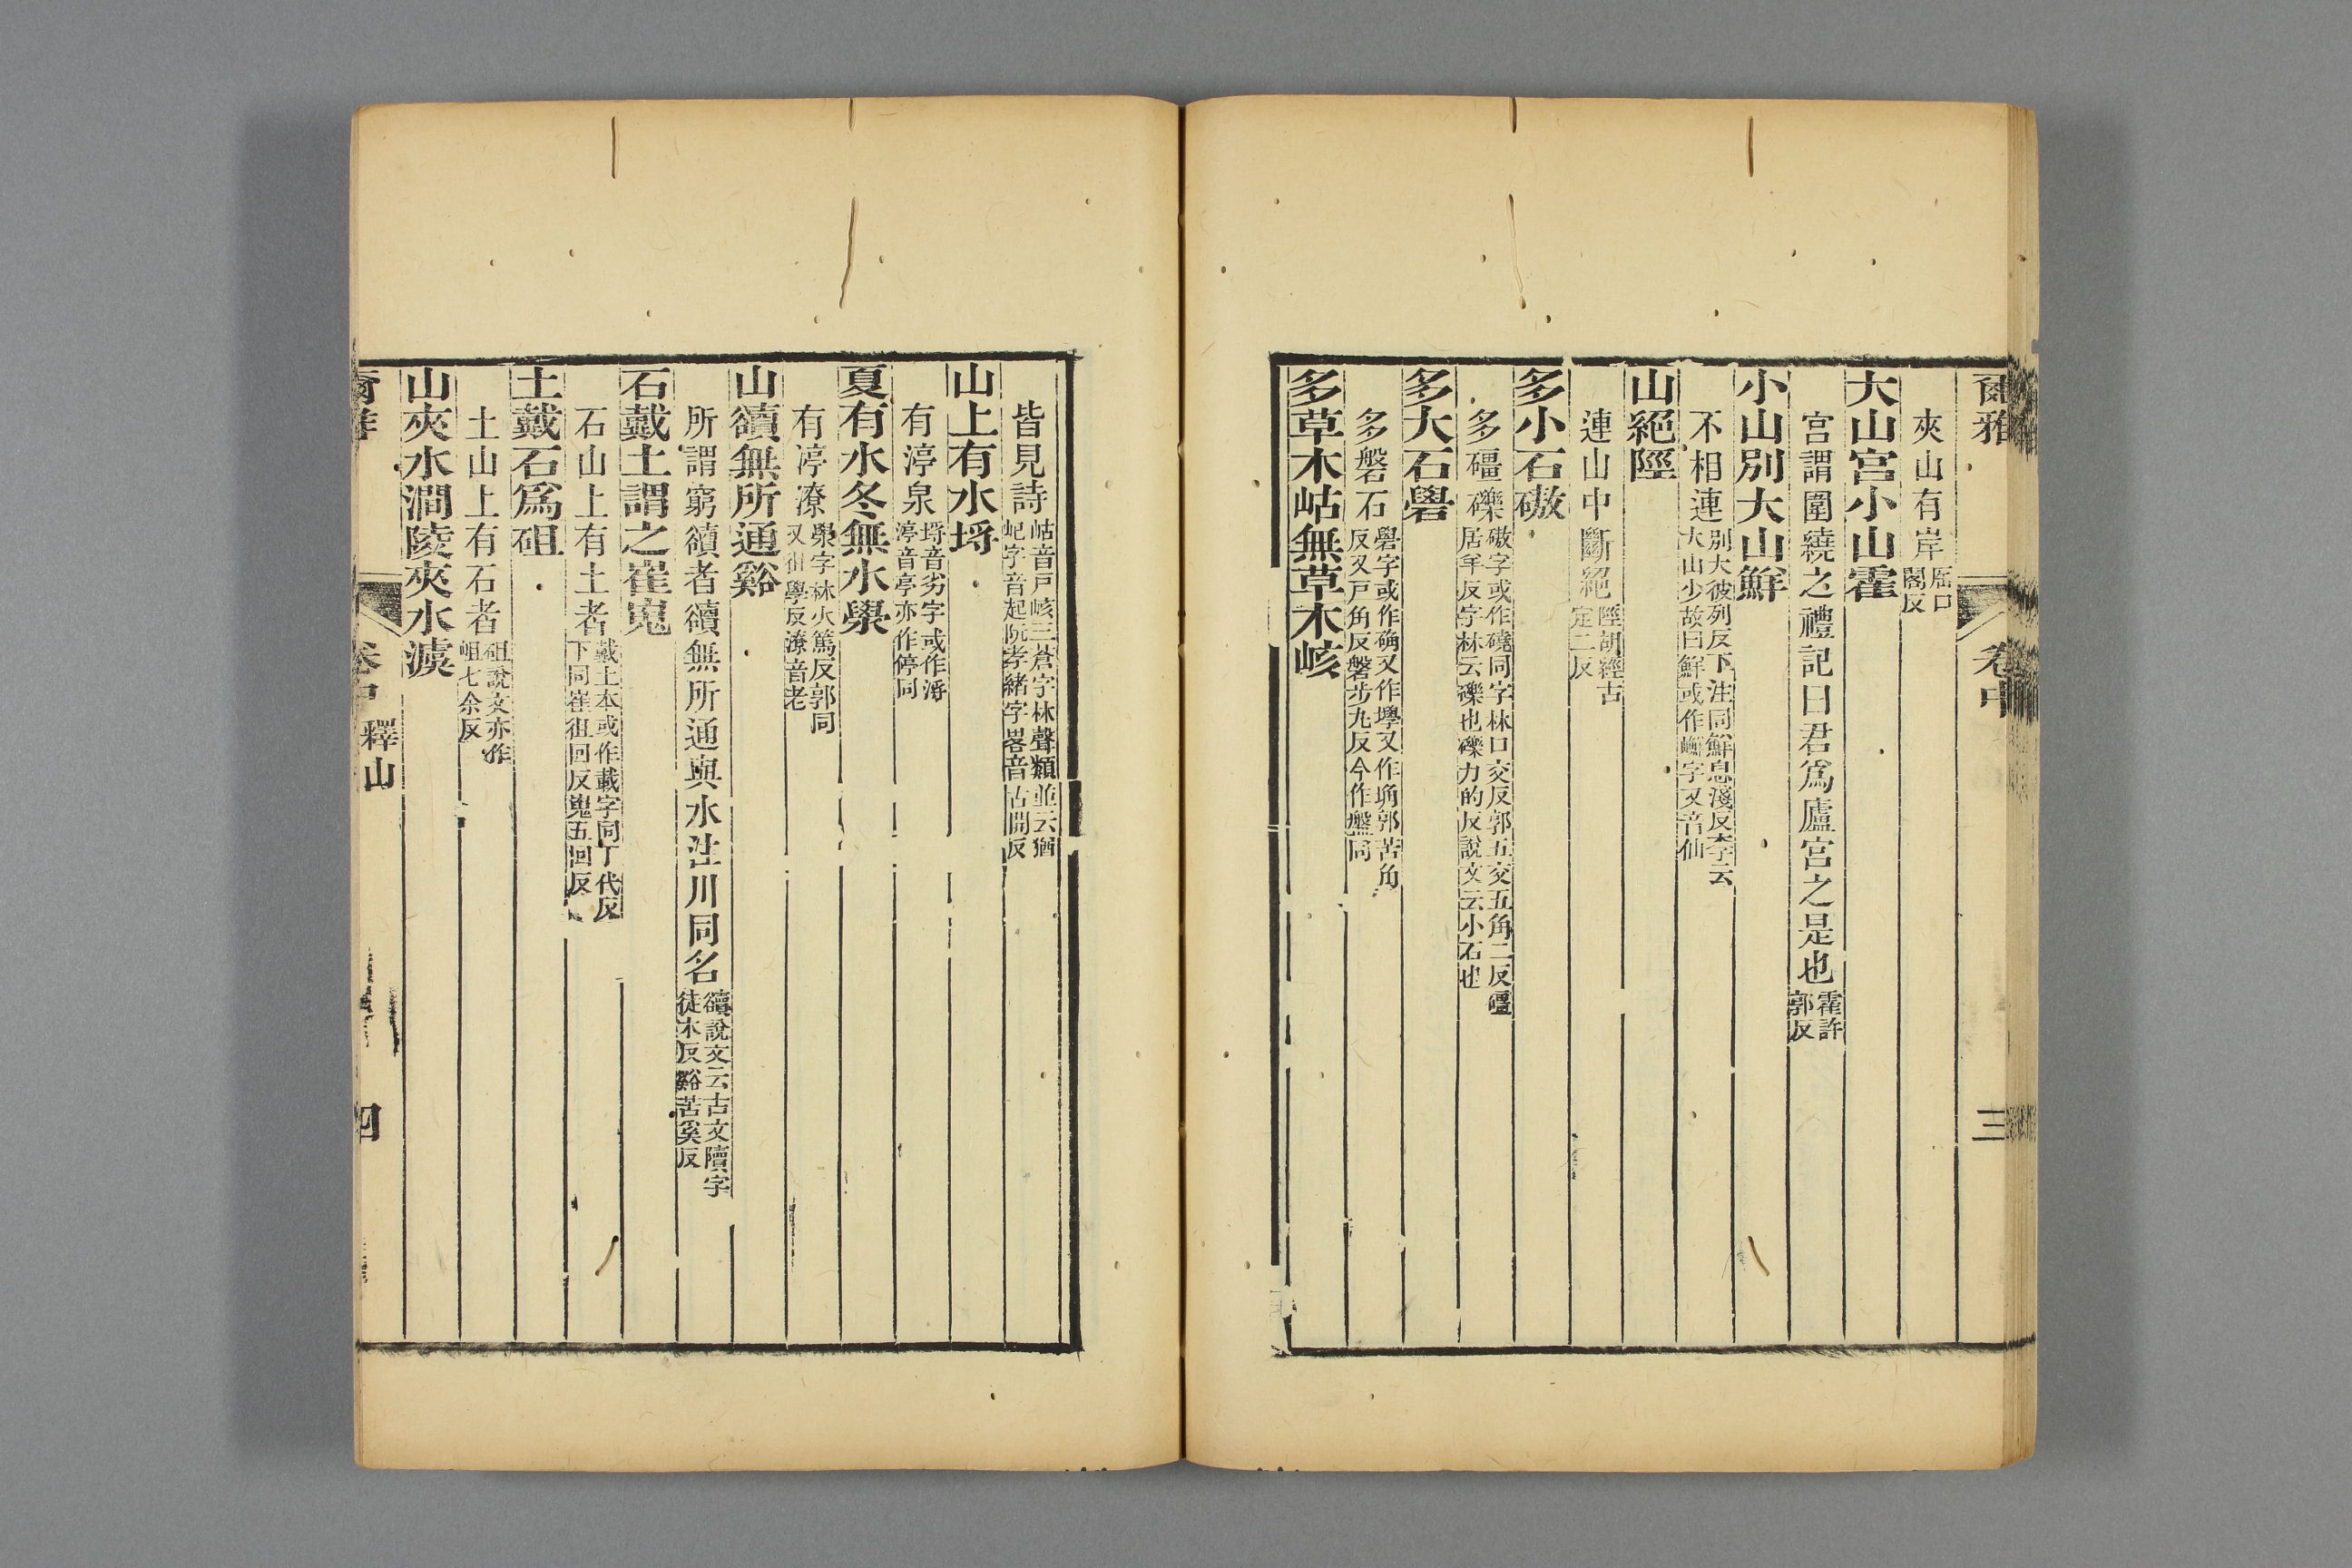 爾雅 卷中 三
夾山有岸㕎口閣反
大山宮小山霍
宮謂圍繞之禮記曰君爲廬宮之是也霍許郭反
小山別大山鮮
不相連別大彼列反下注同鮮息淺反李云大山少故曰鮮或作㠢字又音仙
山絕陘
連山中斷絕陘胡經古定二反
多小石磝
多礓礫磝字或作磽同字林口交反郭五交五角二反礓居羊反字林云礫也礫力的反說文云小石也
多大石礐
多磐石礐字或作确又作㙾又作埆郭苦角反又戶角反磐步丸反今作盤同
多草木岵無草木峐
皆見詩岵音戶峐三蒼字林聲類並云猶屺字音起阮孝緒字畧音古開反
山上有水埒
有渟泉埒音劣字或作浖渟音亭亦作停同
夏有水冬無水澩
有渟潦澩字林火篤反郭同又徂學反潦音老
山豄無所通谿
所謂窮豄者豄無所通與水注川同名豄說文云古文隫字徒木反谿苦奚反
石戴土謂之崔嵬
石山上有土者戴土本或作載字同丁代反下同崔徂回反嵬五回反
土戴石爲砠
土山上有石者砠說文亦作岨七余反
山夾水澗陵夾水澞
爾雅 卷中 釋山 四